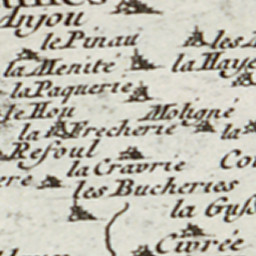 Anjou
le Pinau
les
la Menité
la Haye
la Paquerie
le Hou
Moligné
la Frecherie
la
Refoul
la Cravrie
les Bucheries
la Guss
Civrée